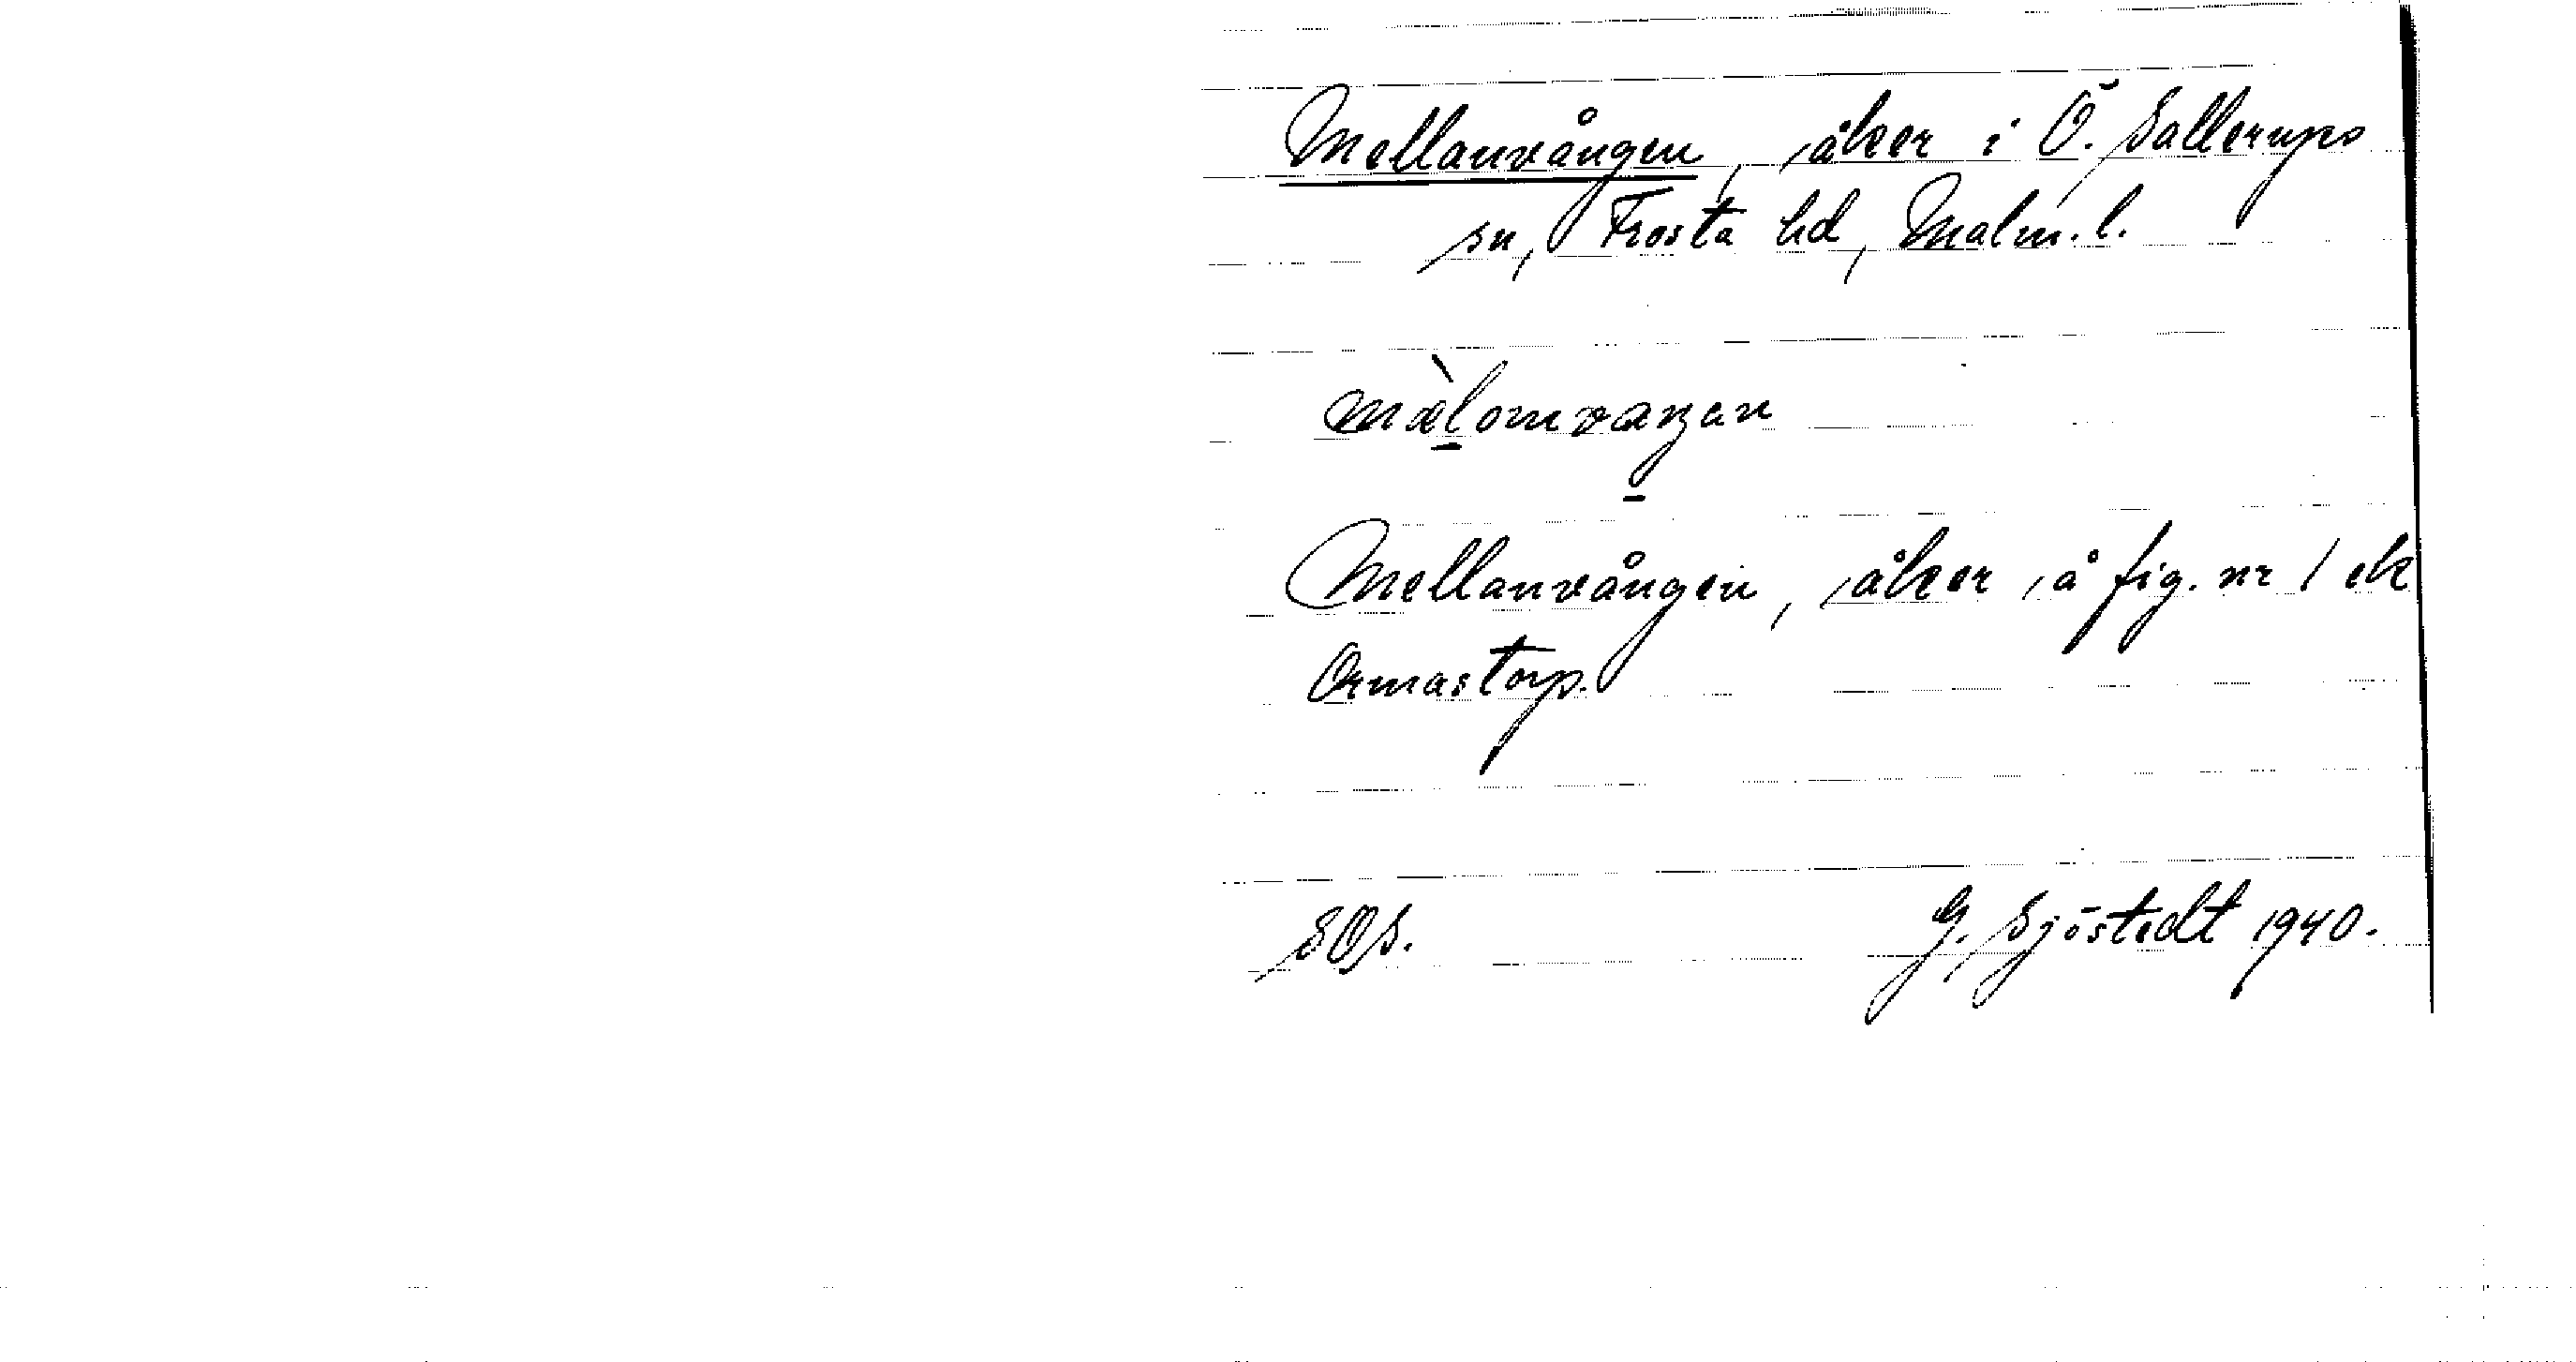 Mellanvången, åker i Ö. Sallerups
sn, Frosta hd, Malm. l.
mæ̀lomvaŋen
Mellanvången, åker å fig. nr 1 ek
Ormastorp.
SOS.
G. Sjöstedt 1940.